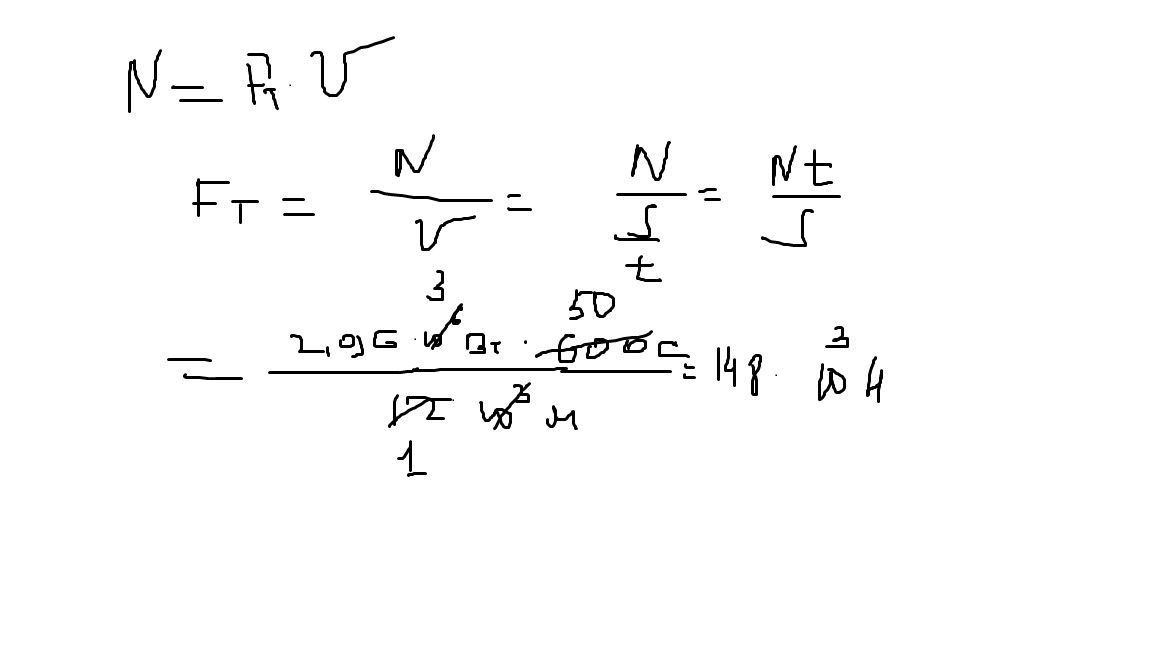 N = Fт · V
Fт = N / V = N / (S / t) = Nt / S
3 50
= 2,96 · 10⁶ Вт · 600 с / 12 10³ м = 148 · 10³ Н
1